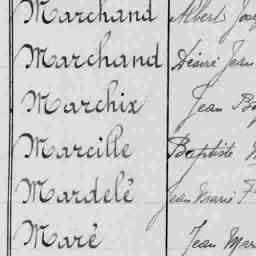 Marchand Albert
Marchand Désiré Jean
Marchix Jean
Marcille Baptiste
Mardelé Jean Marie
Maré Jean Mar